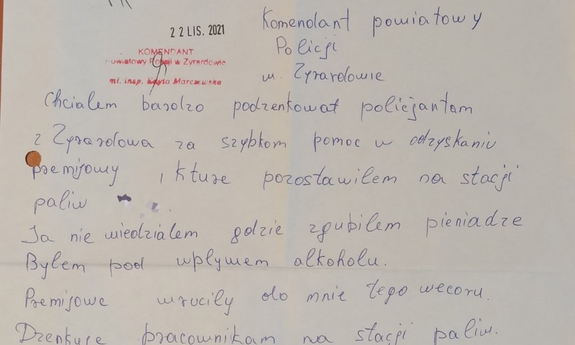 22 LIS. 2021
Komendant powiatowy
Policji
w. Zyrardowie
KOMENDANT
Powiatowy Policji w Żyrardowie
mł. insp.
Chciałem bardzo podzenkować policjantom
z Zyrardowa za szybkom pomoc w odzyskaniu
premijowy , kture pozostawiłem na stacji
paliw
Ja nie wiedziałem gdzie zgubiłem pieniadze
Byłem pod wpływem alkoholu.
Premijowe wruciły do mnie tego wecoru.
Dzenkuje pracownikam na stacji paliw.